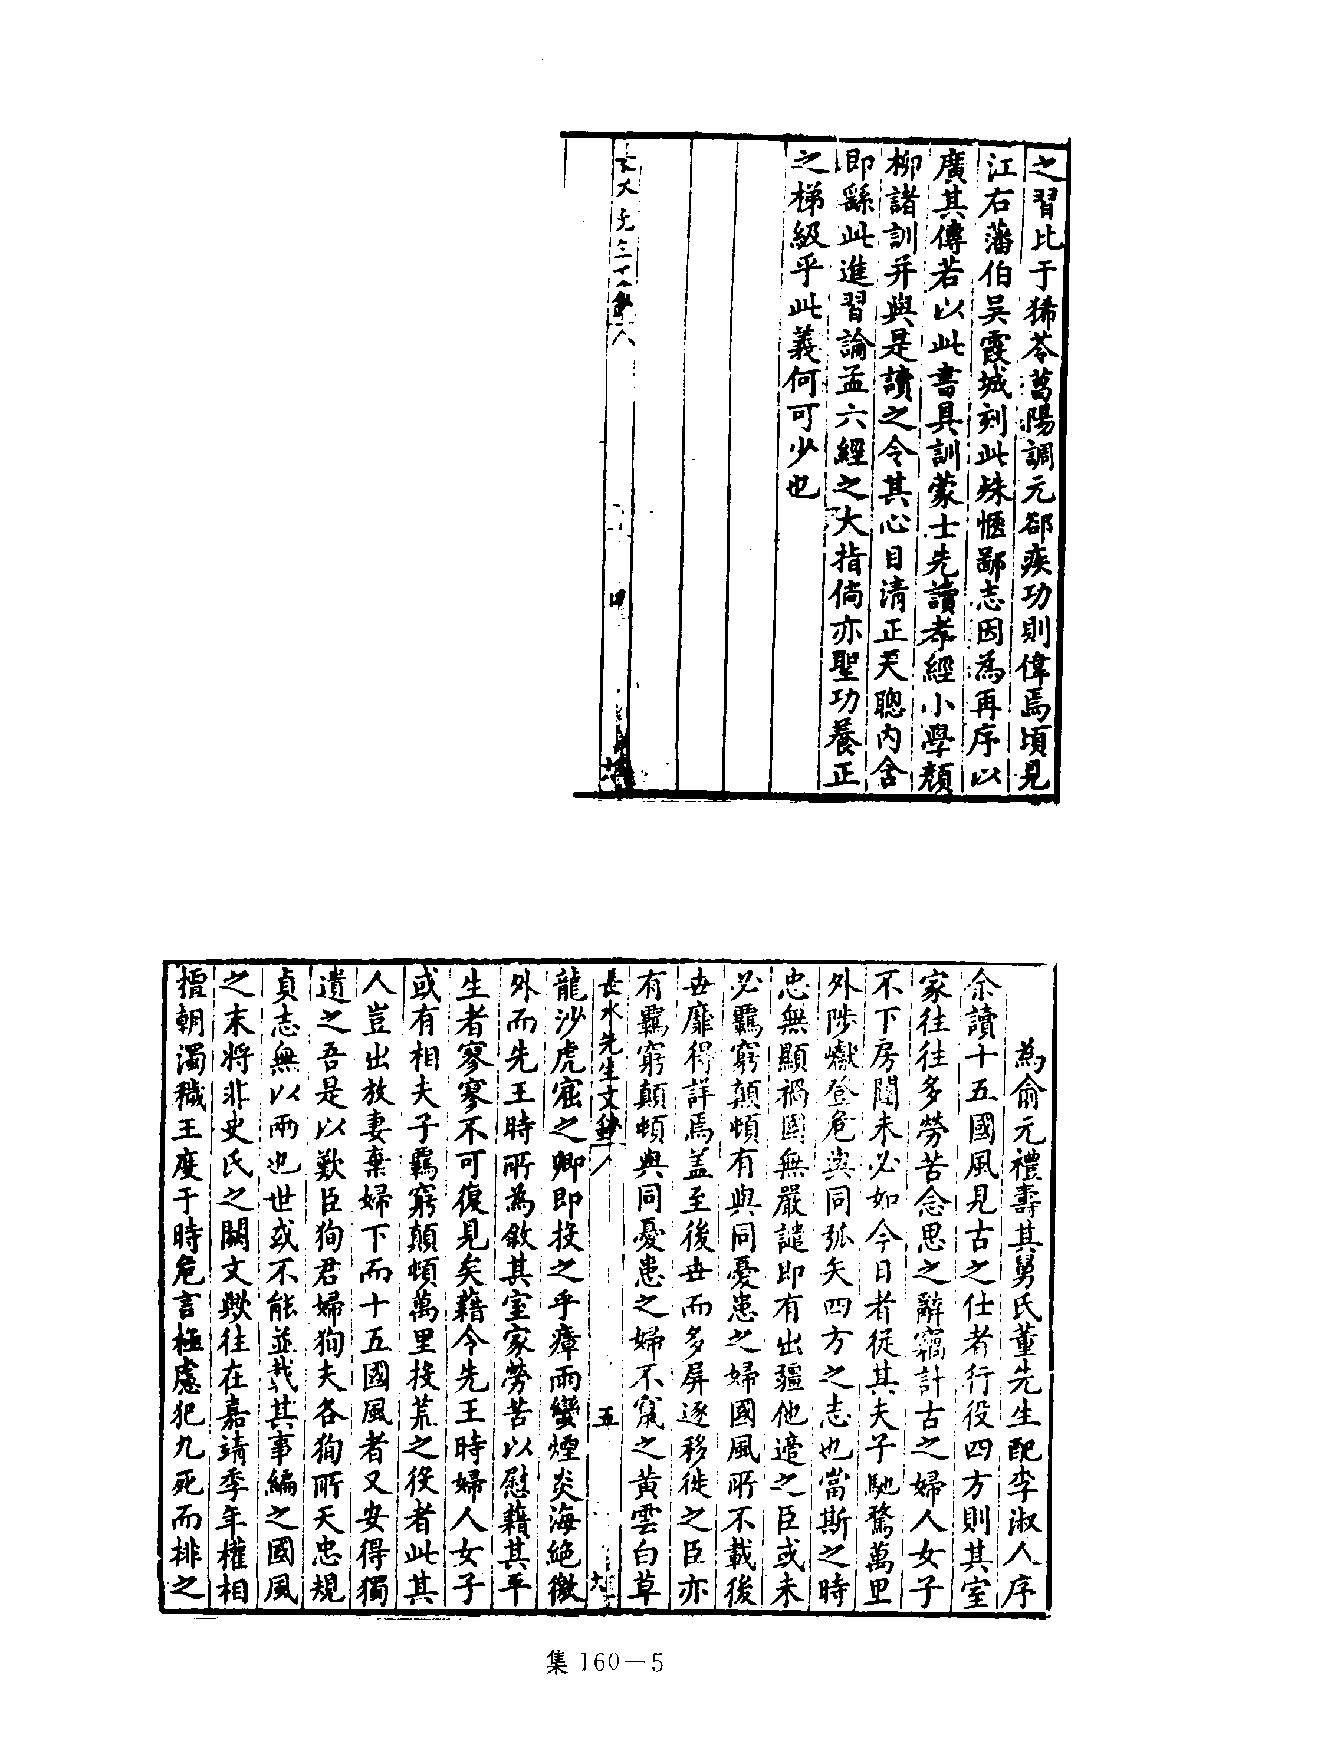 之習比于豨苓萬陽調元郤疾功則偉焉頃見
江右藩伯吳霞城刻此殊愜鄙志因為再序以
廣其傳若以此書具訓蒙士先讀孝經小學顏
柳諸訓并與是讀之令其心目清正天聰內含
即繇此進習論孟六經之大指倘亦聖功養正
之梯級乎此義何可少也
為俞元禮壽其舅氏董先生配李淑人序
余讀十五國風見古之仕者行役四方則其室
家往往多勞苦念思之辭竊計古之婦人女子
不下房闥未必如今日者從其夫子馳騖萬里
外陟巘登危與同弧矢四方之志也當斯之時
忠無顯禍國無嚴譴即有出疆他適之臣或未
必羈窮顛頓有與同憂患之婦國風所不載後
世靡得詳焉蓋至後世而多屏逐移徙之臣亦
有羈窮顛頓與同憂患之婦不竄之黃雲白草
長水先生文鈔 八 五
龍沙虎窟之鄉即投之乎瘴雨蠻煙炎海絕徼
外而先王時所為敘其室家勞苦以慰藉其平
生者寥寥不可復見矣藉令先王時婦人女子
或有相夫子羈窮顛頓萬里投荒之役者此其
人豈出放妻棄婦下而十五國風者又安得獨
遺之吾是以歎臣狥君婦狥夫各狥所天忠規
貞志無以兩也世或不能並載其事編之國風
之末將非史氏之闕文歟往在嘉靖季年權相
擅朝濁穢王度于時危言極慮犯九死而排之
集 160－5